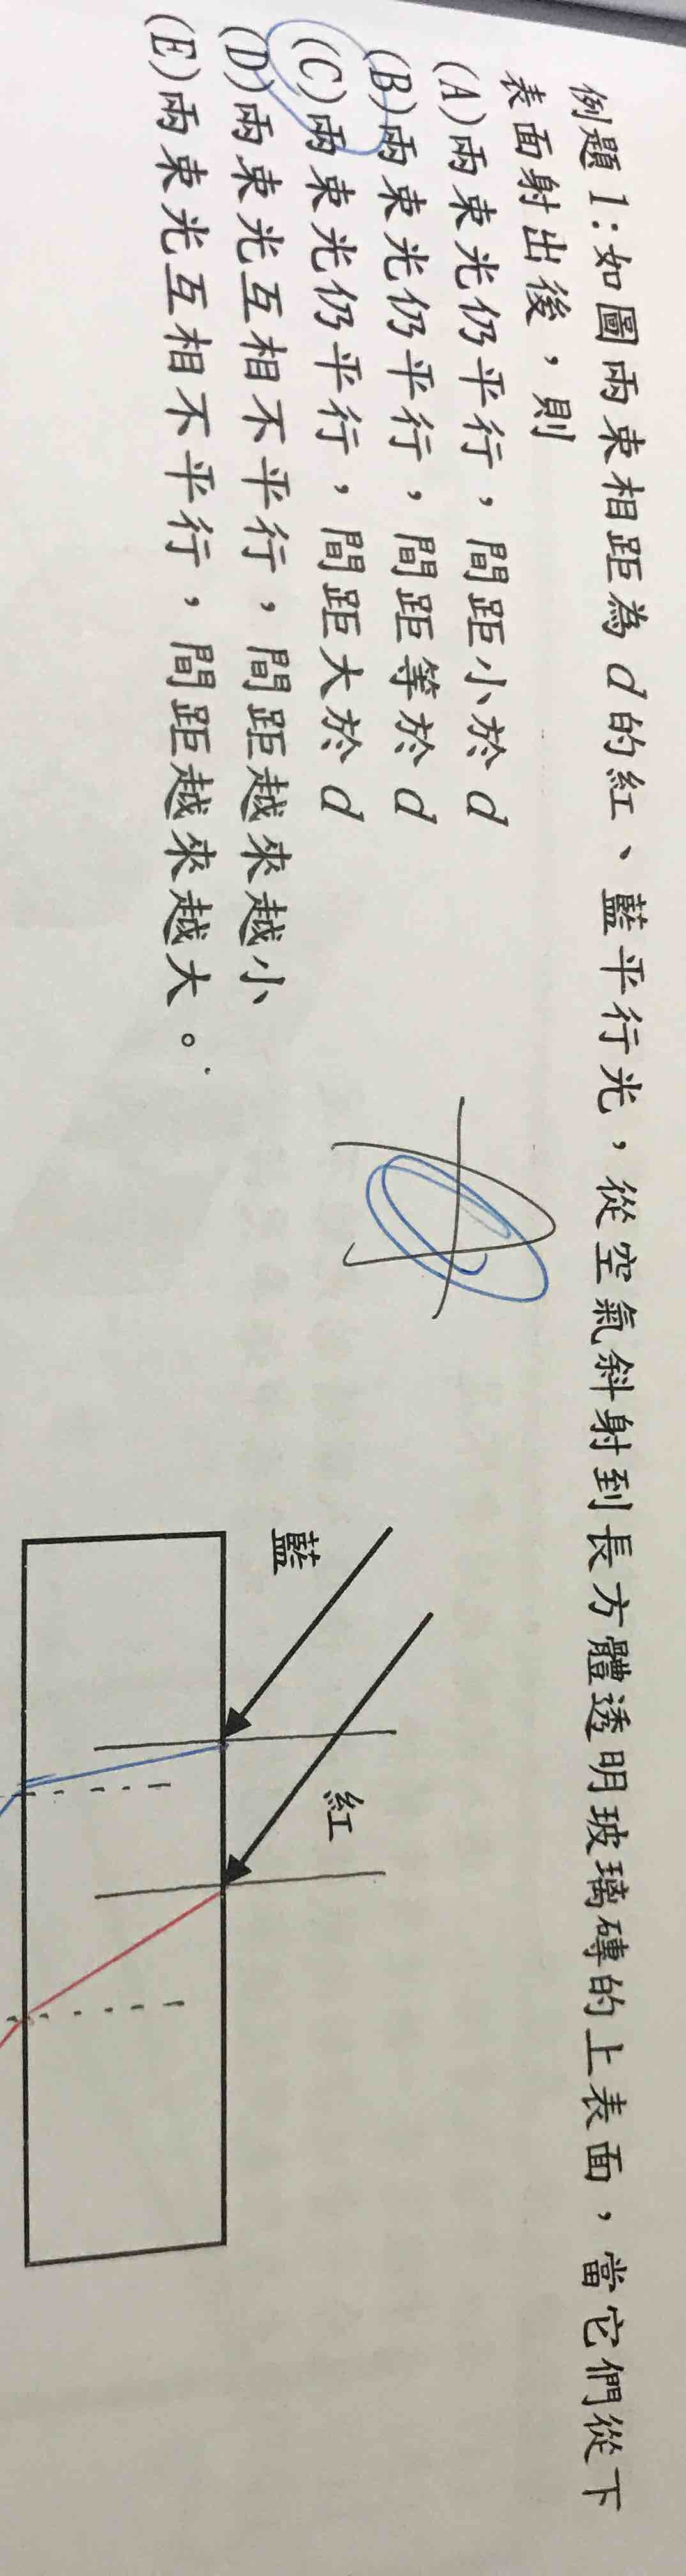 例題1:如圖兩束相距為d的紅、藍平行光,從空氣斜射到長方體透明玻璃磚的上表面,當它們從下
表面射出後,則
(A)兩束光仍平行,間距小於d
(B)兩束光仍平行,間距等於d
(C)兩束光仍平行,間距大於d
(D)兩束光互相不平行,間距越來越小
(E)兩束光互相不平行,間距越來越大。
藍
紅